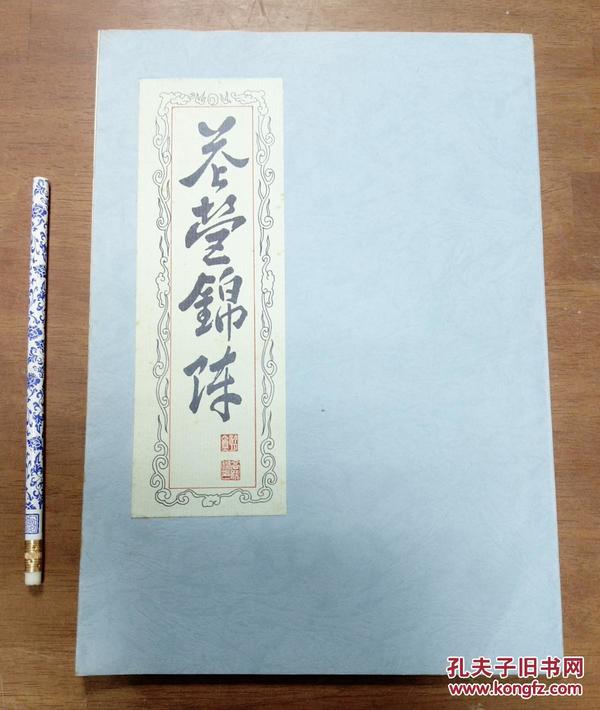 花營錦陣
孔夫子旧书网
www.kongfz.com